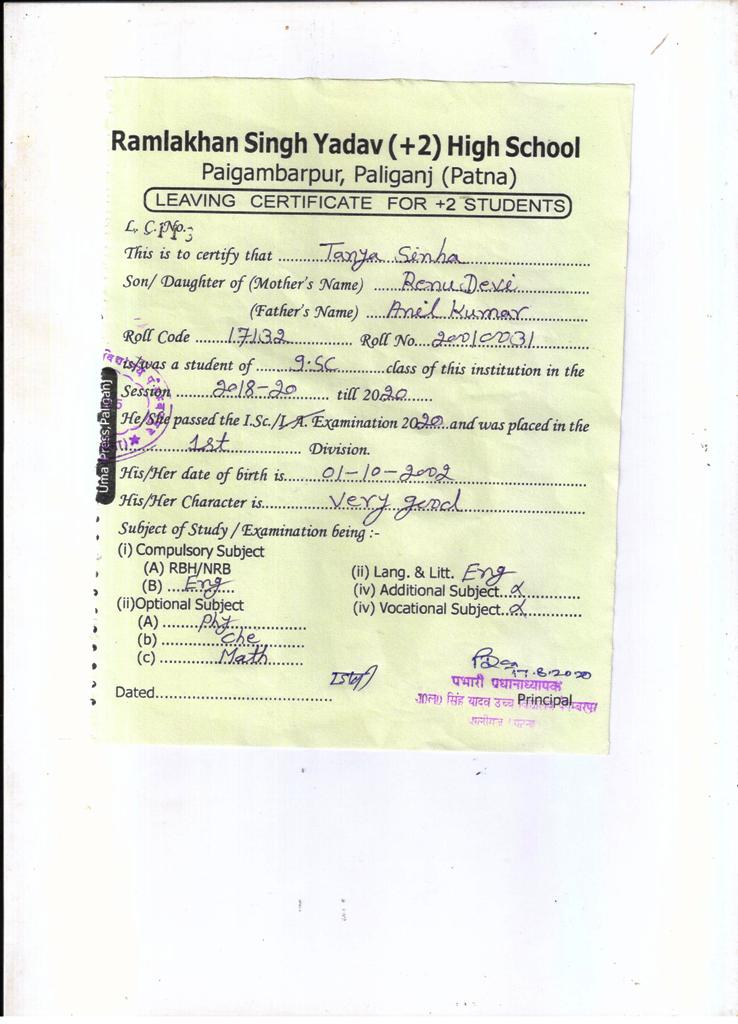 Ramlakhan Singh Yadav (+2) High School
Paigambarpur, Paliganj (Patna)
LEAVING CERTIFICATE FOR +2 STUDENTS
L. C. No. 113
This is to certify that ....Tanya Sinha....
Son/ Daughter of (Mother's Name) ....Renu Devi....
(Father's Name) ....Anil Kumar....
Roll Code ....17132.... Roll No....20010031
is/was a student of ....I.SC....class of this institution in the
Session ....2018-20.... till 2020....
He/She passed the I.Sc./I.A. Examination 2020..and was placed in the
....1st.... Division.
His/Her date of birth is....01-10-2002
His/Her Character is....very good....
Subject of Study / Examination being :-
(i) Compulsory Subject
(A) RBH/NRB (ii) Lang. & Litt. Eng
(B) ....Eng.... (iv) Additional Subject..
(ii)Optional Subject (iv) Vocational Subject..
(A) ....Phy....
(b) ....Che....
(c) ....Math....
17.6.2020
प्रभारी प्रधानाध्यापक
Dated.... Principal
सिंह यादव उच्च
Uma Press,Paliganj